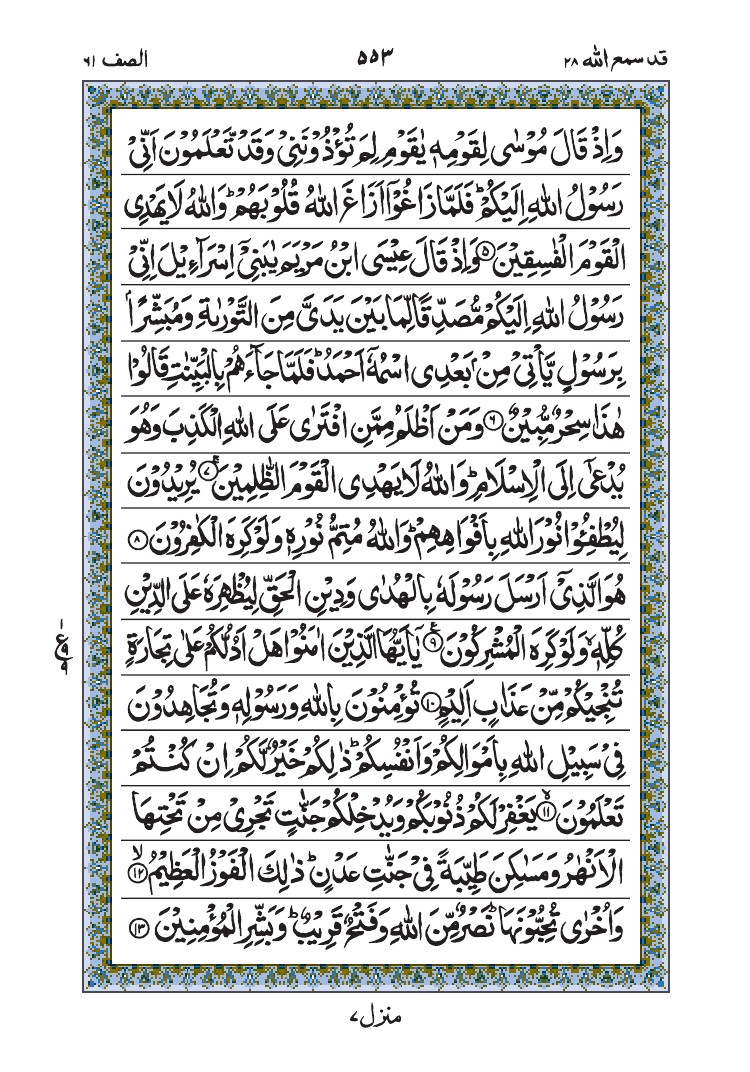 قد سمع الله ٢٨ ٥٥٣ الصف ٦١
وَاِذْ قَالَ مُوْسٰى لِقَوْمِهٖ يٰقَوْمِ لِمَ تُؤْذُوْنَنِيْ وَقَدْ تَّعْلَمُوْنَ اَنِّيْ
رَسُوْلُ اللّٰهِ اِلَيْكُمْ ؕ فَلَمَّا زَاغُوْۤا اَزَاغَ اللّٰهُ قُلُوْبَهُمْ ؕ وَاللّٰهُ لَا يَهْدِي
الْقَوْمَ الْفٰسِقِيْنَ ۝٥ وَاِذْ قَالَ عِيْسَى ابْنُ مَرْيَمَ يٰبَنِيْۤ اِسْرَآءِيْلَ اِنِّيْ
رَسُوْلُ اللّٰهِ اِلَيْكُمْ مُّصَدِّقًا لِّمَا بَيْنَ يَدَيَّ مِنَ التَّوْرٰىةِ وَمُبَشِّرًۢا
بِرَسُوْلٍ يَّاْتِيْ مِنْۢ بَعْدِي اسْمُهٗۤ اَحْمَدُ ؕ فَلَمَّا جَآءَهُمْ بِالْبَيِّنٰتِ قَالُوْا
هٰذَا سِحْرٌ مُّبِيْنٌ ۝٦ وَمَنْ اَظْلَمُ مِمَّنِ افْتَرٰى عَلَى اللّٰهِ الْكَذِبَ وَهُوَ
يُدْعٰۤى اِلَى الْاِسْلَامِ ؕ وَاللّٰهُ لَا يَهْدِي الْقَوْمَ الظّٰلِمِيْنَ ۝٧ۚ يُرِيْدُوْنَ
لِيُطْفِـُٔوْا نُوْرَ اللّٰهِ بِاَفْوَاهِهِمْ ؕ وَاللّٰهُ مُتِمُّ نُوْرِهٖ وَلَوْ كَرِهَ الْكٰفِرُوْنَ ۝٨
هُوَ الَّذِيْۤ اَرْسَلَ رَسُوْلَهٗ بِالْهُدٰى وَدِيْنِ الْحَقِّ لِيُظْهِرَهٗ عَلَى الدِّيْنِ
كُلِّهٖ ۙ وَلَوْ كَرِهَ الْمُشْرِكُوْنَ ۝٩ۧ يٰۤاَيُّهَا الَّذِيْنَ اٰمَنُوْا هَلْ اَدُلُّكُمْ عَلٰى تِجَارَةٍ
تُنْجِيْكُمْ مِّنْ عَذَابٍ اَلِيْمٍ ۝١٠ تُؤْمِنُوْنَ بِاللّٰهِ وَرَسُوْلِهٖ وَتُجَاهِدُوْنَ
فِيْ سَبِيْلِ اللّٰهِ بِاَمْوَالِكُمْ وَاَنْفُسِكُمْ ؕ ذٰلِكُمْ خَيْرٌ لَّكُمْ اِنْ كُنْتُمْ
تَعْلَمُوْنَ ۝١١ۙ يَغْفِرْ لَكُمْ ذُنُوْبَكُمْ وَيُدْخِلْكُمْ جَنّٰتٍ تَجْرِيْ مِنْ تَحْتِهَا
الْاَنْهٰرُ وَمَسٰكِنَ طَيِّبَةً فِيْ جَنّٰتِ عَدْنٍ ؕ ذٰلِكَ الْفَوْزُ الْعَظِيْمُ ۝١٢ۙ
وَاُخْرٰى تُحِبُّوْنَهَا ؕ نَصْرٌ مِّنَ اللّٰهِ وَفَتْحٌ قَرِيْبٌ ؕ وَبَشِّرِ الْمُؤْمِنِيْنَ ۝١٣
منزل ٧